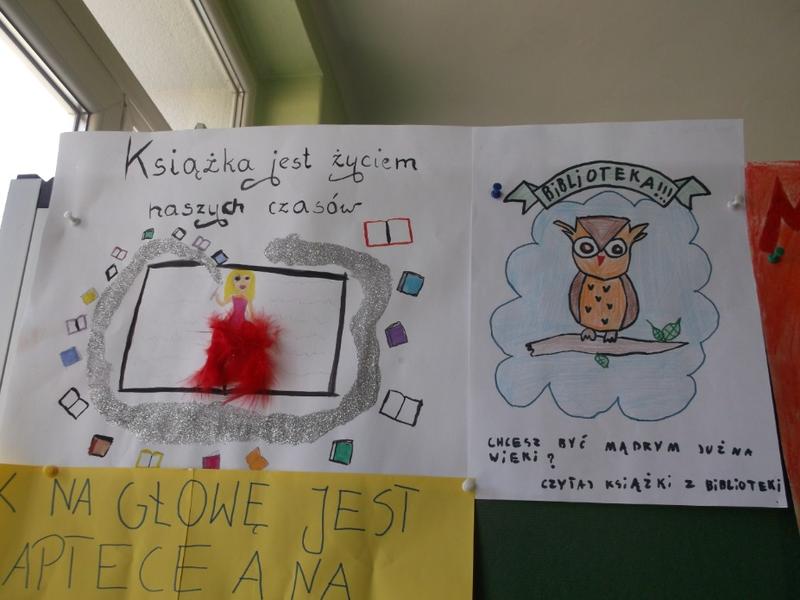 Książka jest życiem
naszych czasów
BiBLjOTEKA!!!
CHCESZ BYĆ MĄDRYM JUŻ NA
WIEKI?
CZYTAJ KSIĄŻKI Z BIBLIOTEKI
K NA GŁOWĘ JEST
APTECE A NA
M